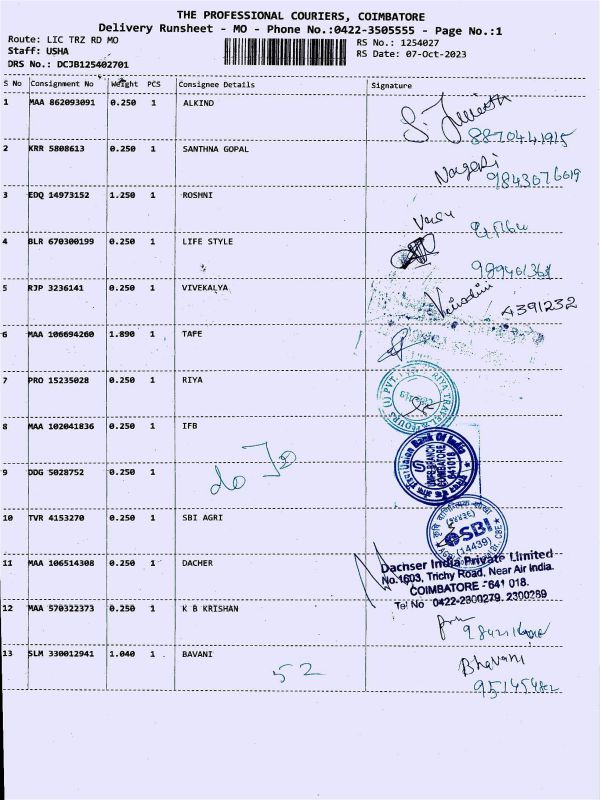 THE PROFESSIONAL COURIERS, COIMBATORE
Delivery Runsheet - MO - Phone No.:0422-3505555 - Page No.:1
Route: LIC TRZ RD MO
RS No.: 1254027
Staff: USHA
RS Date: 07-Oct-2023
DRS No.: DCJB125402701
S No Consignment No Weight PCS Consignee Details Signature
1 MAA 862093091 0.250 1 ALKIND
8870441915
2 KRR 5808613 0.250 1 SANTHNA GOPAL
9843076019
3 EDQ 14973152 1.250 1 ROSHNI
4 BLR 670300199 0.250 1 LIFE STYLE
5 RJP 3236141 0.250 1 VIVEKALYA
4391232
6 MAA 106694260 1.890 1 TAFE
7 PRO 15235028 0.250 1 RIYA
RIYA TRAVEL & TOURS (I) PVT.
8 MAA 102041836 0.250 1 IFB
Union Bank Of India
BRANCH
COIMBATORE
641018
9 DDG 5028752 0.250 1
10 TVR 4153270 0.250 1 SBI AGRI
SBI
(14439)
11 MAA 106514308 0.250 1 DACHER
Dachser India Private Limited
No.1603, Trichy Road, Near Air India.
COIMBATORE - 641 018.
Tel No 0422-2300279, 2300289
12 MAA 570322373 0.250 1 K B KRISHAN
13 SLM 330012941 1.040 1 BAVANI
52
Bhavani